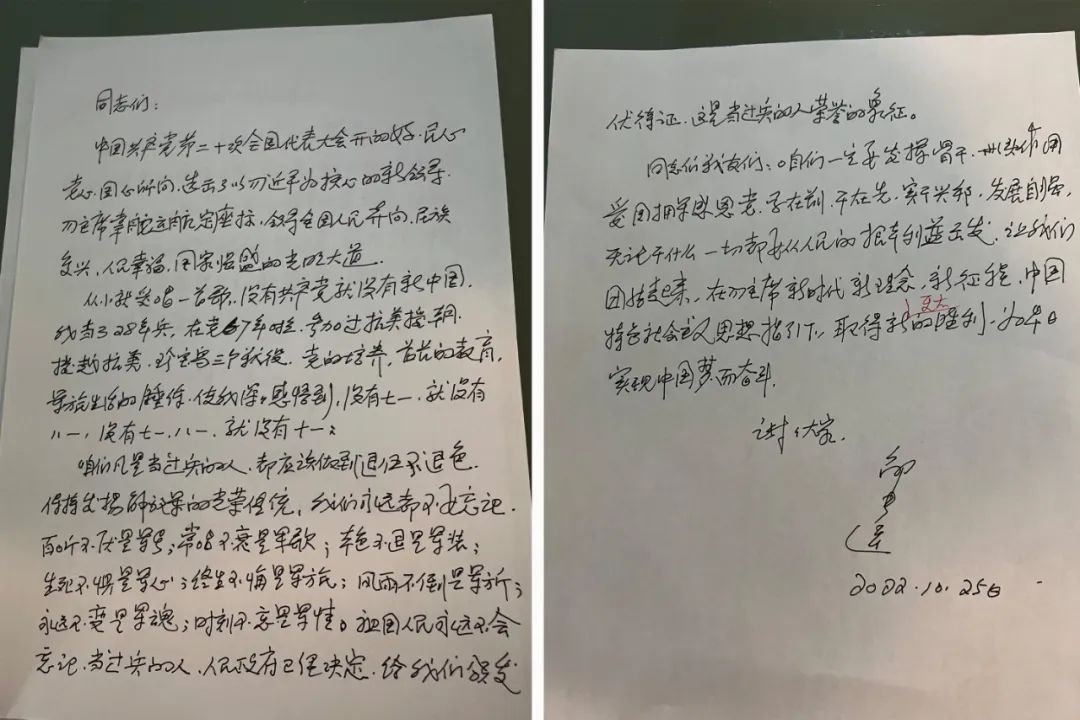 同志们：
中国共产党第二十次全国代表大会开的好.民心
党心.国心所向.选出了以习近平为核心的新领导.
习主席掌舵远航定座标.领导全国人民奔向.民族
复兴，人民幸福，国家强盛的光明大道.
从小就爱唱一首歌，没有共产党就没有新中国，
我当了28年兵，在党67年时空.参加过抗美援朝.
援越抗美.珍宝岛三个战役.党的培养，首长的教育，
军旅生活的锤炼.使我深深感悟到，没有七一.就没有
八一，没有七一.八一.就没有十一；
咱们凡是当过兵的人.都应该做到退伍不退色.
保持发扬解放军的光荣传统，我们永远都不会忘记.
百听不厌是军号；常唱不衰是军歌；本色不退是军装；
生死不惧是军心；终生不悔是军旅；风雨不倒是军旗；
永远不变是军魂；时刻不忘是军情。祖国人民永远不会
忘记.当过兵的人.人民政府已经决定.给我们颁发
优待证.这是当过兵的人荣誉的象征。
同志们战友们：咱们一定要发挥骨干.
爱国拥军感恩党.学在前.干在先.实干兴邦.发展自强.
无论干什么一切都要从人民的根本利益出发.让我们
团结起来，在习主席新时代新理念，新征程.中国
更大
特色社会主义思想指引下，取得新的胜利.为早日
实现中国梦而奋斗.
谢谢大家.
2022.10.25日